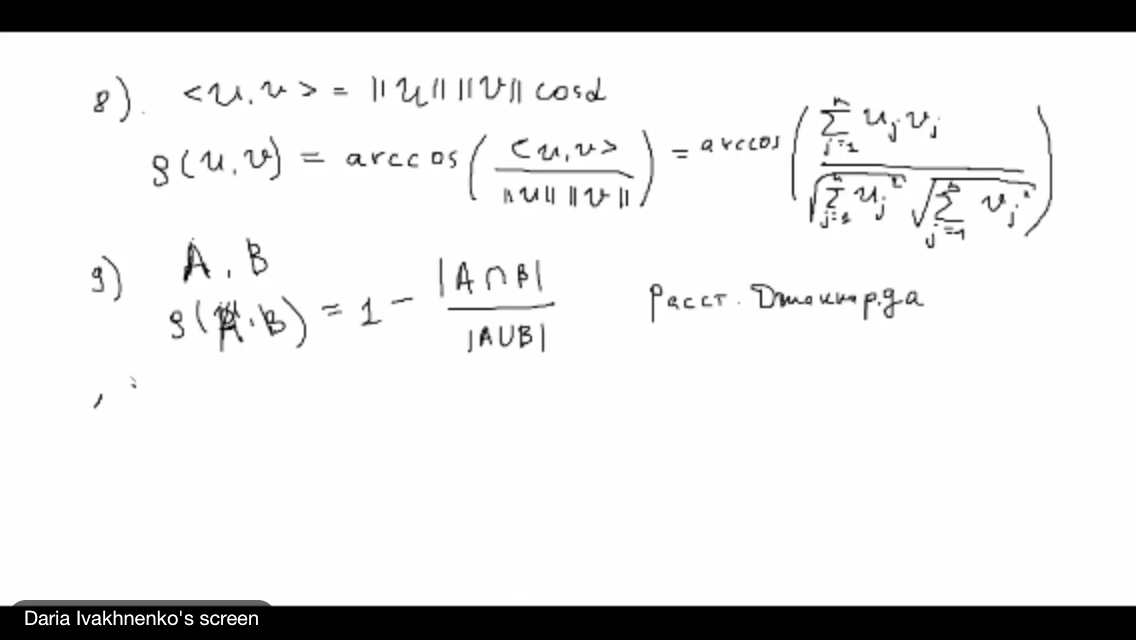 8). <u, v> = ||u|| ||v|| cosα
ρ(u, v) = arccos( <u, v> / ||u|| ||v|| ) = arccos( ∑_{j=1}^{n} u_j v_j / √(∑_{j=1}^{n} u_j²) √(∑_{j=1}^{n} v_j²) )
9) A, B
ρ(A, B) = 1 - |A ∩ B| / |A ∪ B| Расст. Джаккарда
Daria Ivakhnenko's screen